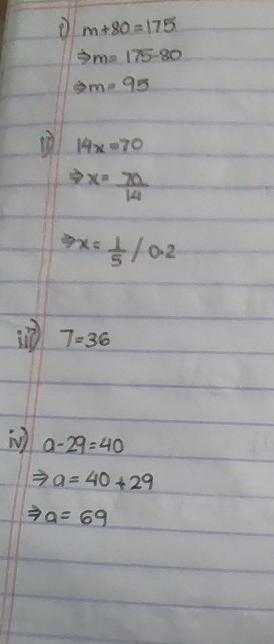 i) m+80=175
⇒m= 175-80
⇒m= 95
ii) 14x=70
⇒x= 70/14
⇒x= 1/5 / 0.2
iii) 7=36
iv) a-29=40
⇒a= 40+29
⇒a= 69